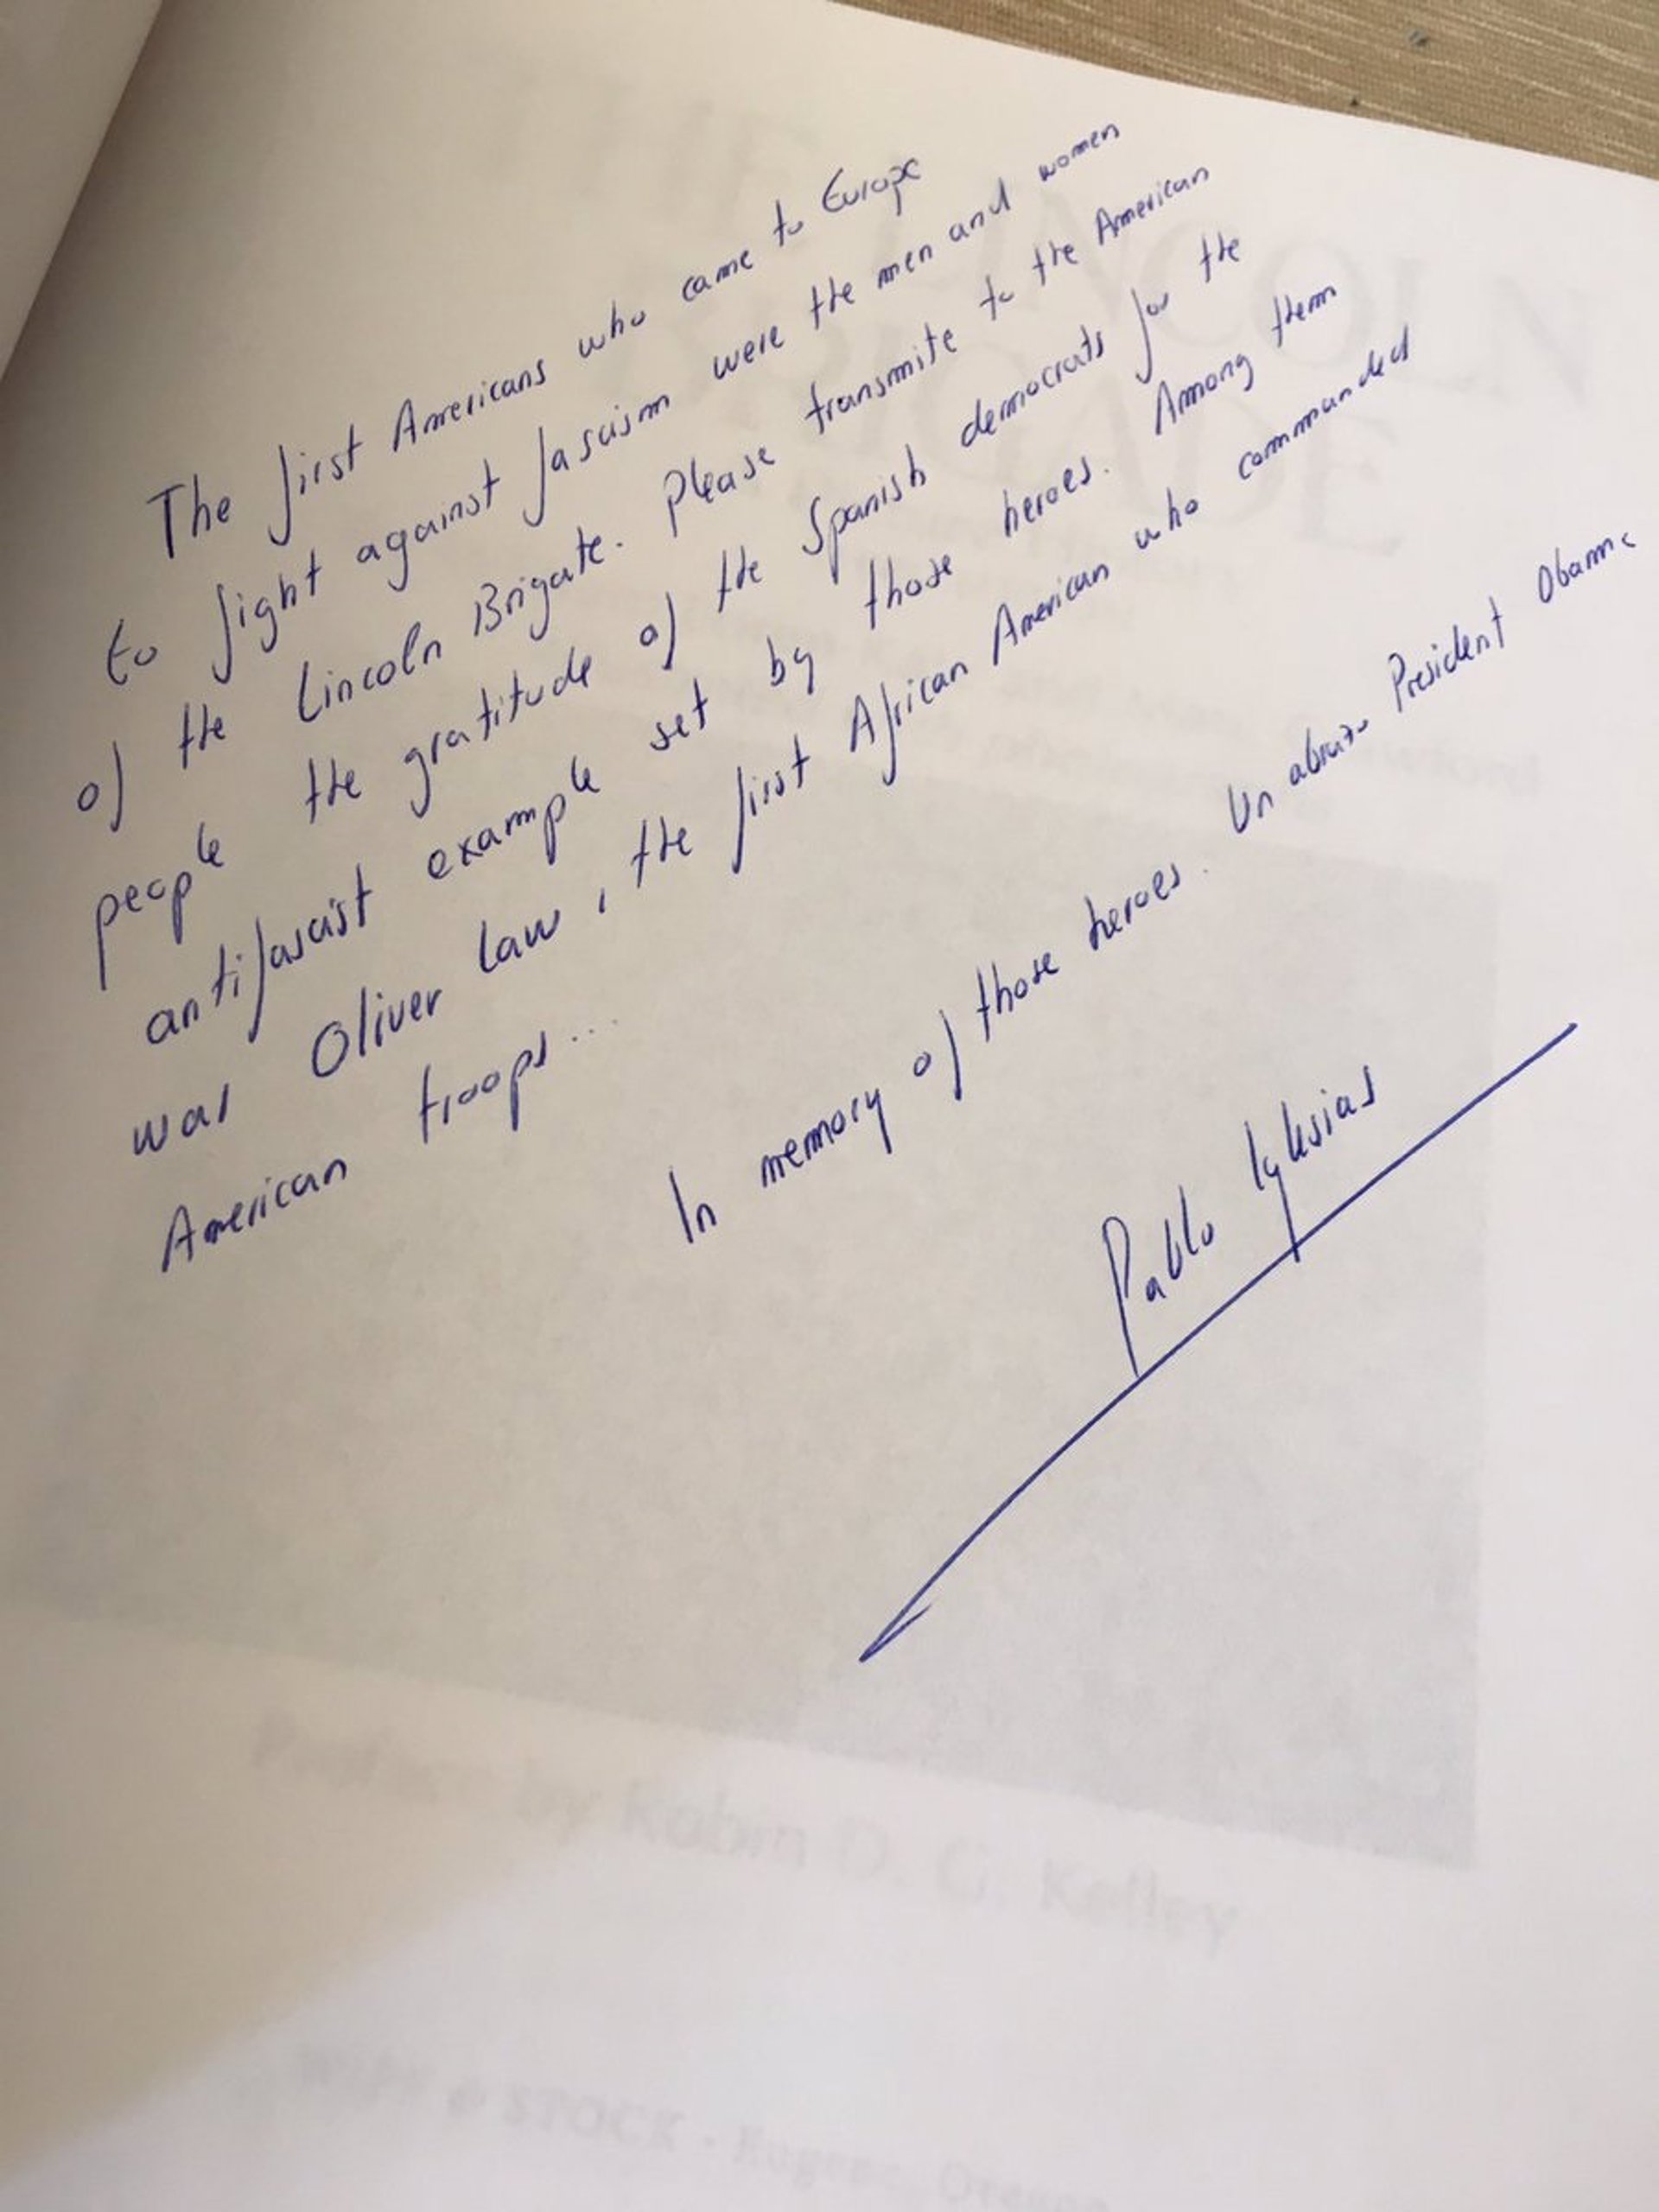 The first Americans who came to Europe
to fight against fascism were the men and women
of the Lincoln Brigate. Please transmite to the American
people the gratitude of the Spanish democrats for the
antifascist example set by those heroes. Among them
was Oliver Law, the first African American who commanded
American troops...
In memory of those heroes. Un abrazo President Obama
Pablo Iglesias
THE LINCOLN
BRIGADE
Preface by Robin D. G. Kelley
WIPF & STOCK • Eugene, Oregon